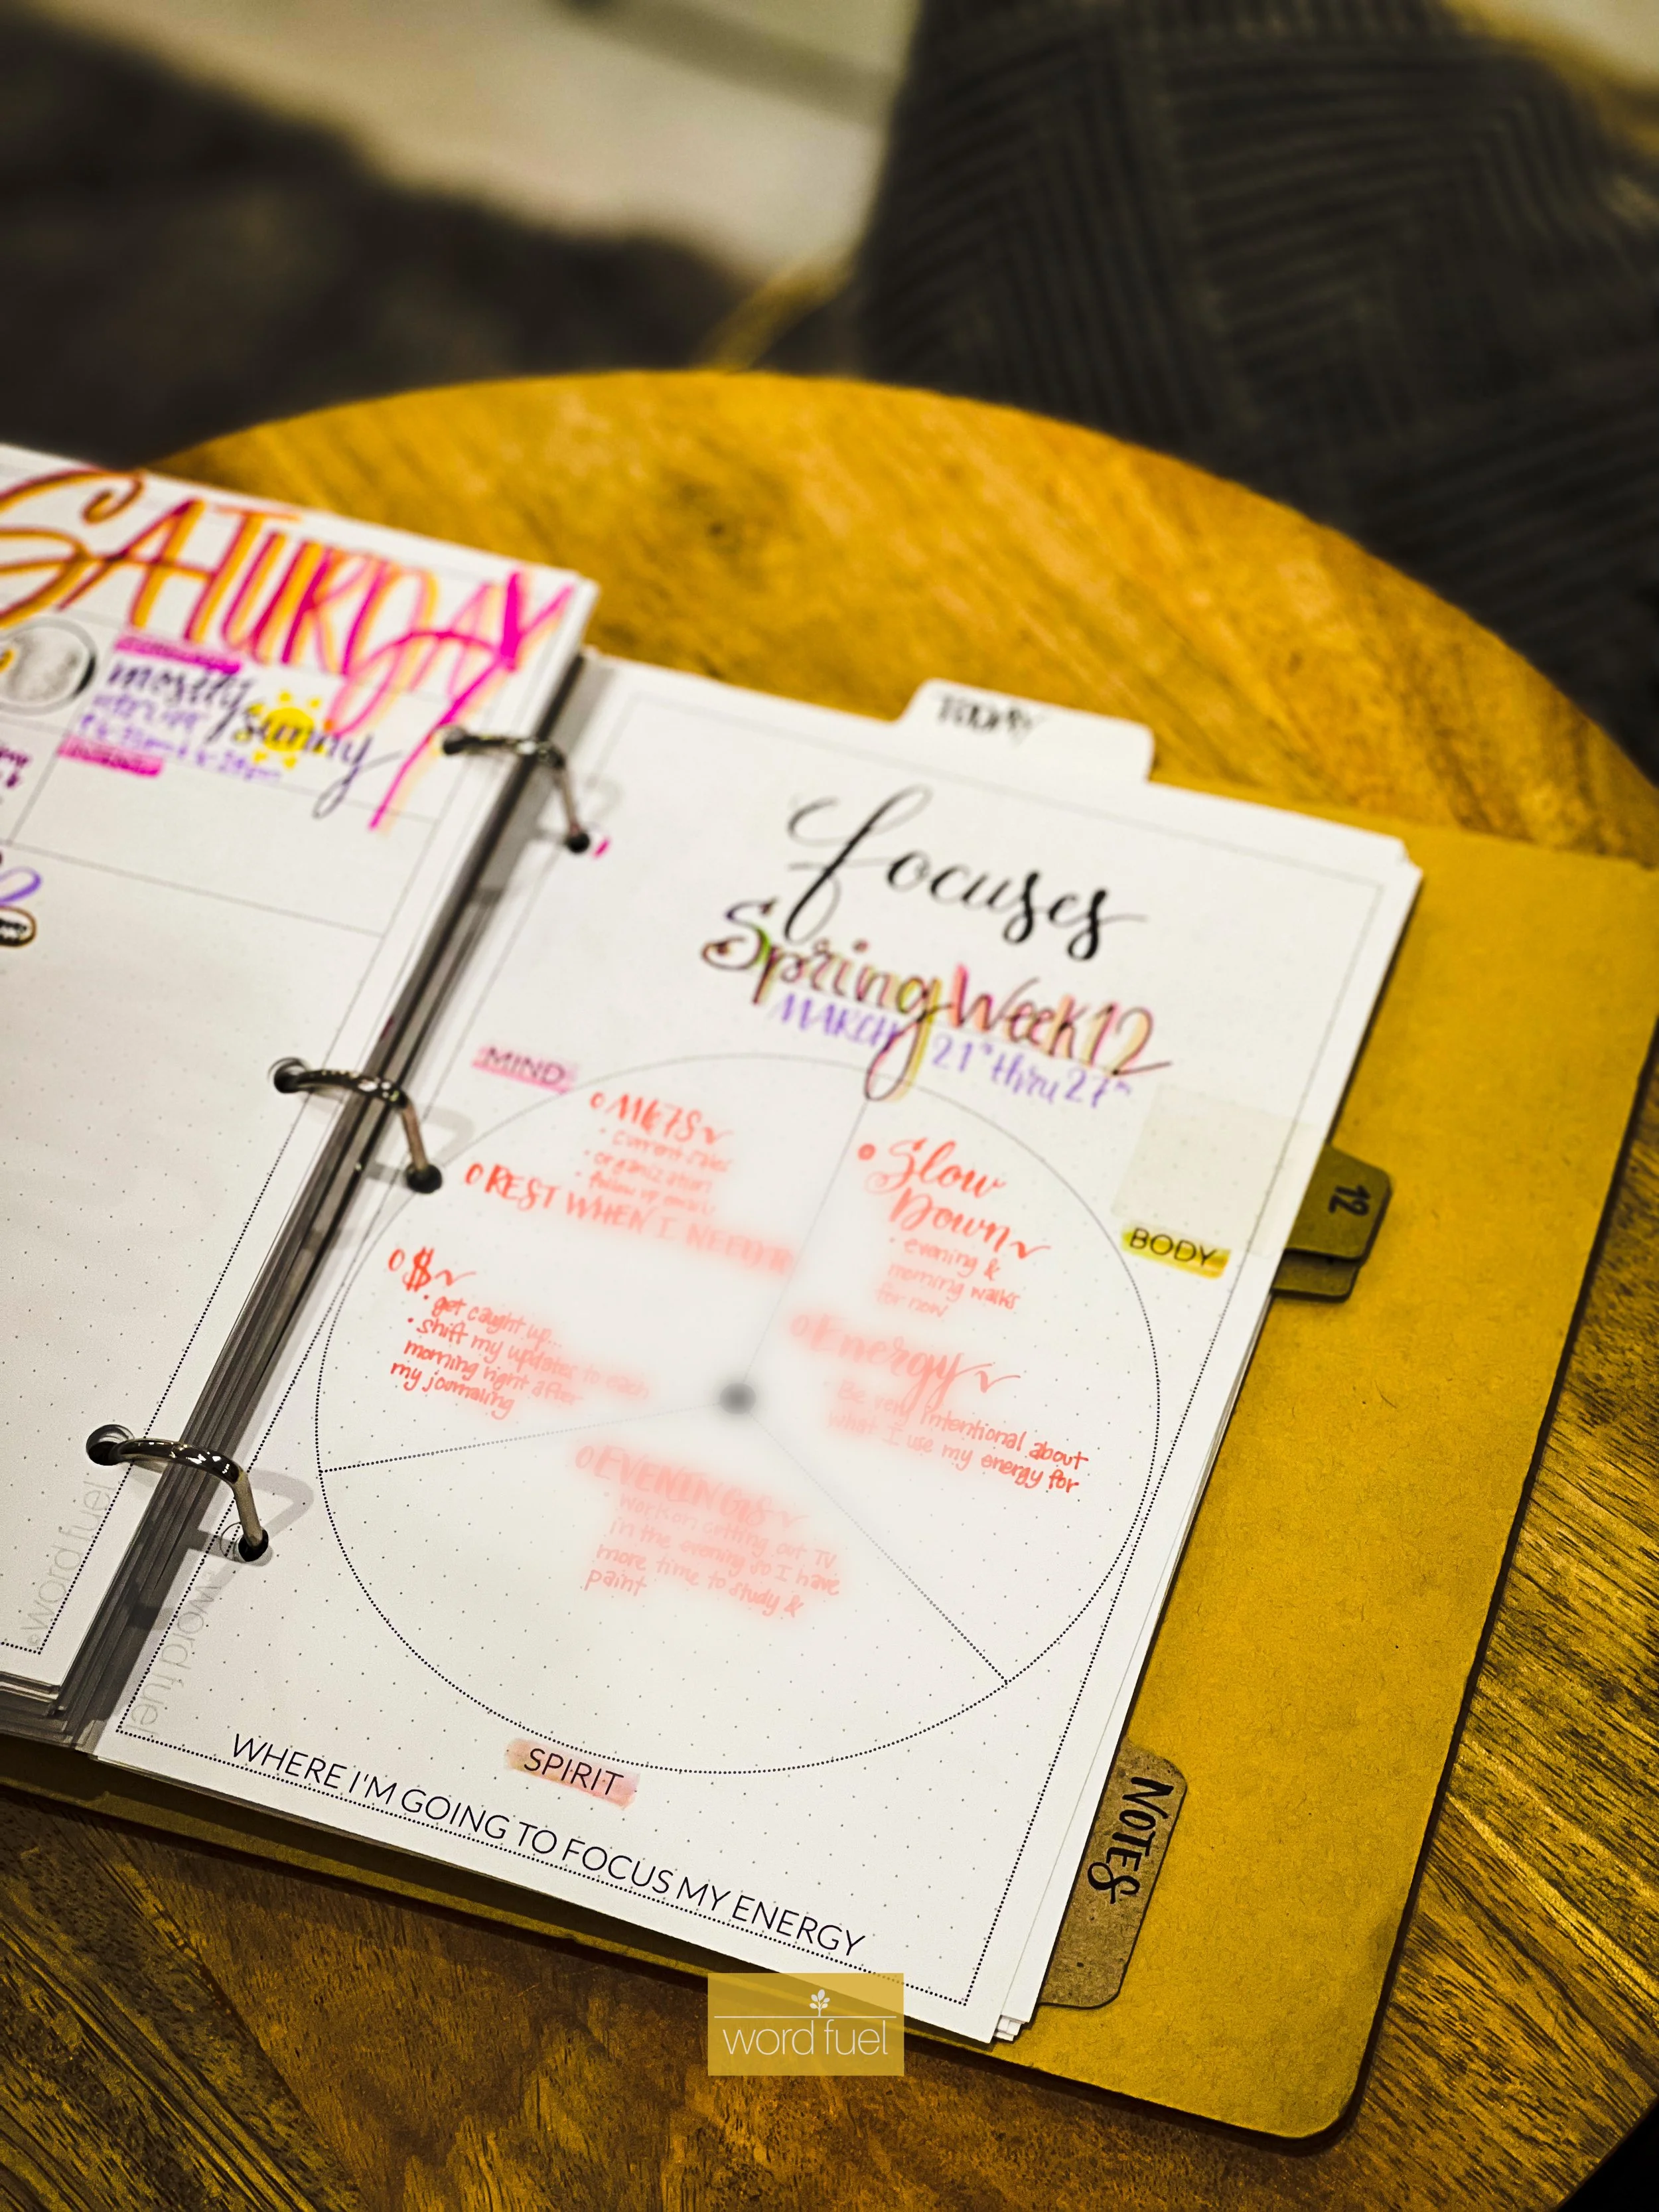 SATURDAY
mostly
sunny
TODAY
focuses
Spring Week 12
MARCH 21st thru 27th
MIND
REST WHEN I NEED
$
• get caught up...
• shift my updates to each
morning right after
my journaling
• Slow
Down
• evening &
morning walks
for now
BODY
Energy
Be very intentional about
what I use my energy for
EVENINGS
work on cutting out TV
in the evening so I have
more time to study &
paint
SPIRIT
WHERE I'M GOING TO FOCUS MY ENERGY
12
NOTES
©word fuel
word fuel
word fuel